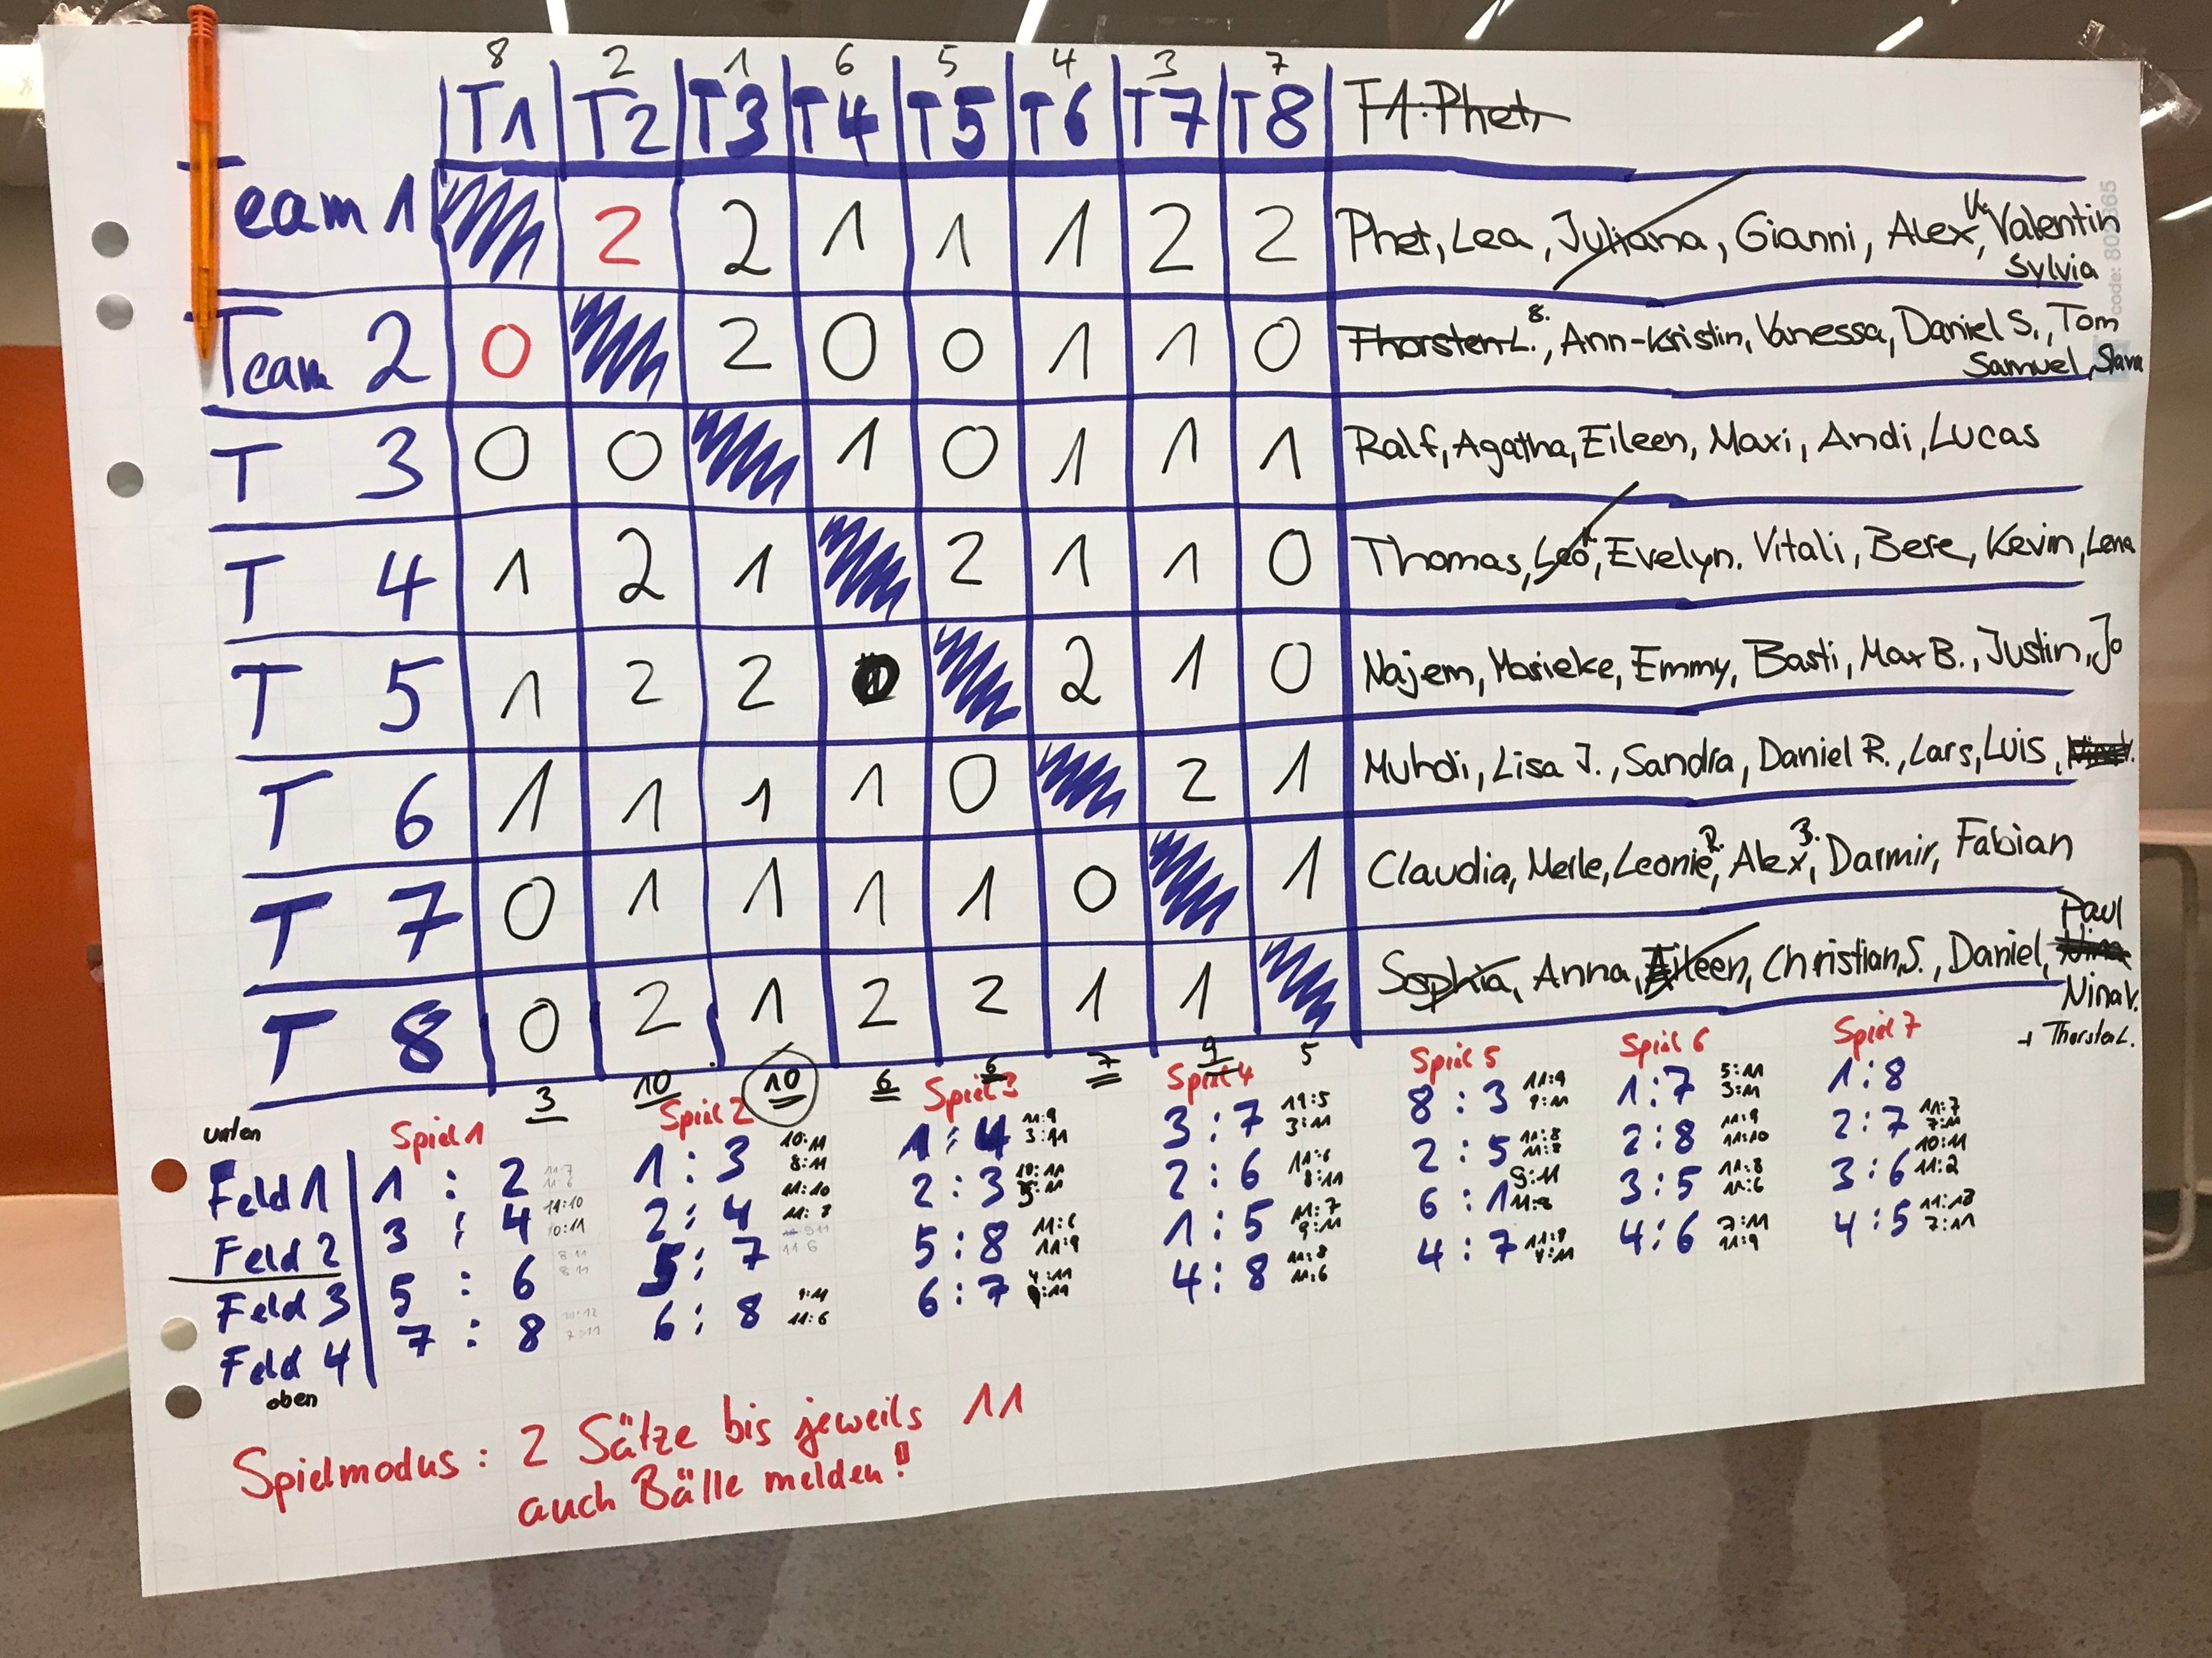 8 2 1 6 5 4 3 7
T1 T2 T3 T4 T5 T6 T7 T8 T1: Phet,
Team 1 2 2 1 1 1 2 2 Phet, Lea, Juliana, Gianni, Alex V., Valentin
Sylvia
code: 802365
Team 2 0 2 0 0 1 1 0 Thorsten L., 8. Ann-Kristin, Vanessa, Daniel S., Tom
Samuel, Slava
T 3 0 0 1 0 1 1 1 Ralf, Agatha, Eileen, Maxi, Andi, Lucas
T 4 1 2 1 2 1 1 0 Thomas, Leo, Evelyn. Vitali, Bere, Kevin, Lena
T 5 1 2 2 2 1 0 Najem, Marieke, Emmy, Basti, Max B., Justin, Jo
T 6 1 1 1 1 0 2 1 Muhdi, Lisa J., Sandra, Daniel R., Lars, Luis,
T 7 0 1 1 1 1 0 1 Claudia, Merle, Leonie R., Alex B., Darmir, Fabian
Paul
T 8 0 2 1 2 2 1 1 Sophia, Anna, Aileen, Christian S., Daniel, Nina
Nina V.
+ Thorsten L.
3 10 10 6 6 7 9 5
unten Spiel 1 Spiel 2 Spiel 3 Spiel 4 Spiel 5 Spiel 6 Spiel 7
Feld 1 1 : 2 1 : 3 10:11 8:11 1 : 4 11:9 3:11 3 : 7 3:11 8 : 3 11:9 9:11 1 : 7 5:11 3:11 1 : 8
Feld 2 3 : 4 2 : 4 11:10 11:8 2 : 3 10:11 2 : 6 11:6 8:11 2 : 5 11:8 11:8 2 : 8 11:9 11:10 2 : 7 11:7 7:11
Feld 3 5 : 6 5 : 7 5 : 8 11:6 11:9 1 : 5 11:7 9:11 6 : 1 9:11 11:8 3 : 5 11:8 11:6 3 : 6 10:11 11:2
Feld 4 7 : 8 6 : 8 9:11 11:6 6 : 7 4:11 4 : 8 11:8 11:6 4 : 7 4 : 6 7:11 11:9 4 : 5 7:11
oben
Spielmodus: 2 Sätze bis jeweils 11
auch Bälle melden!